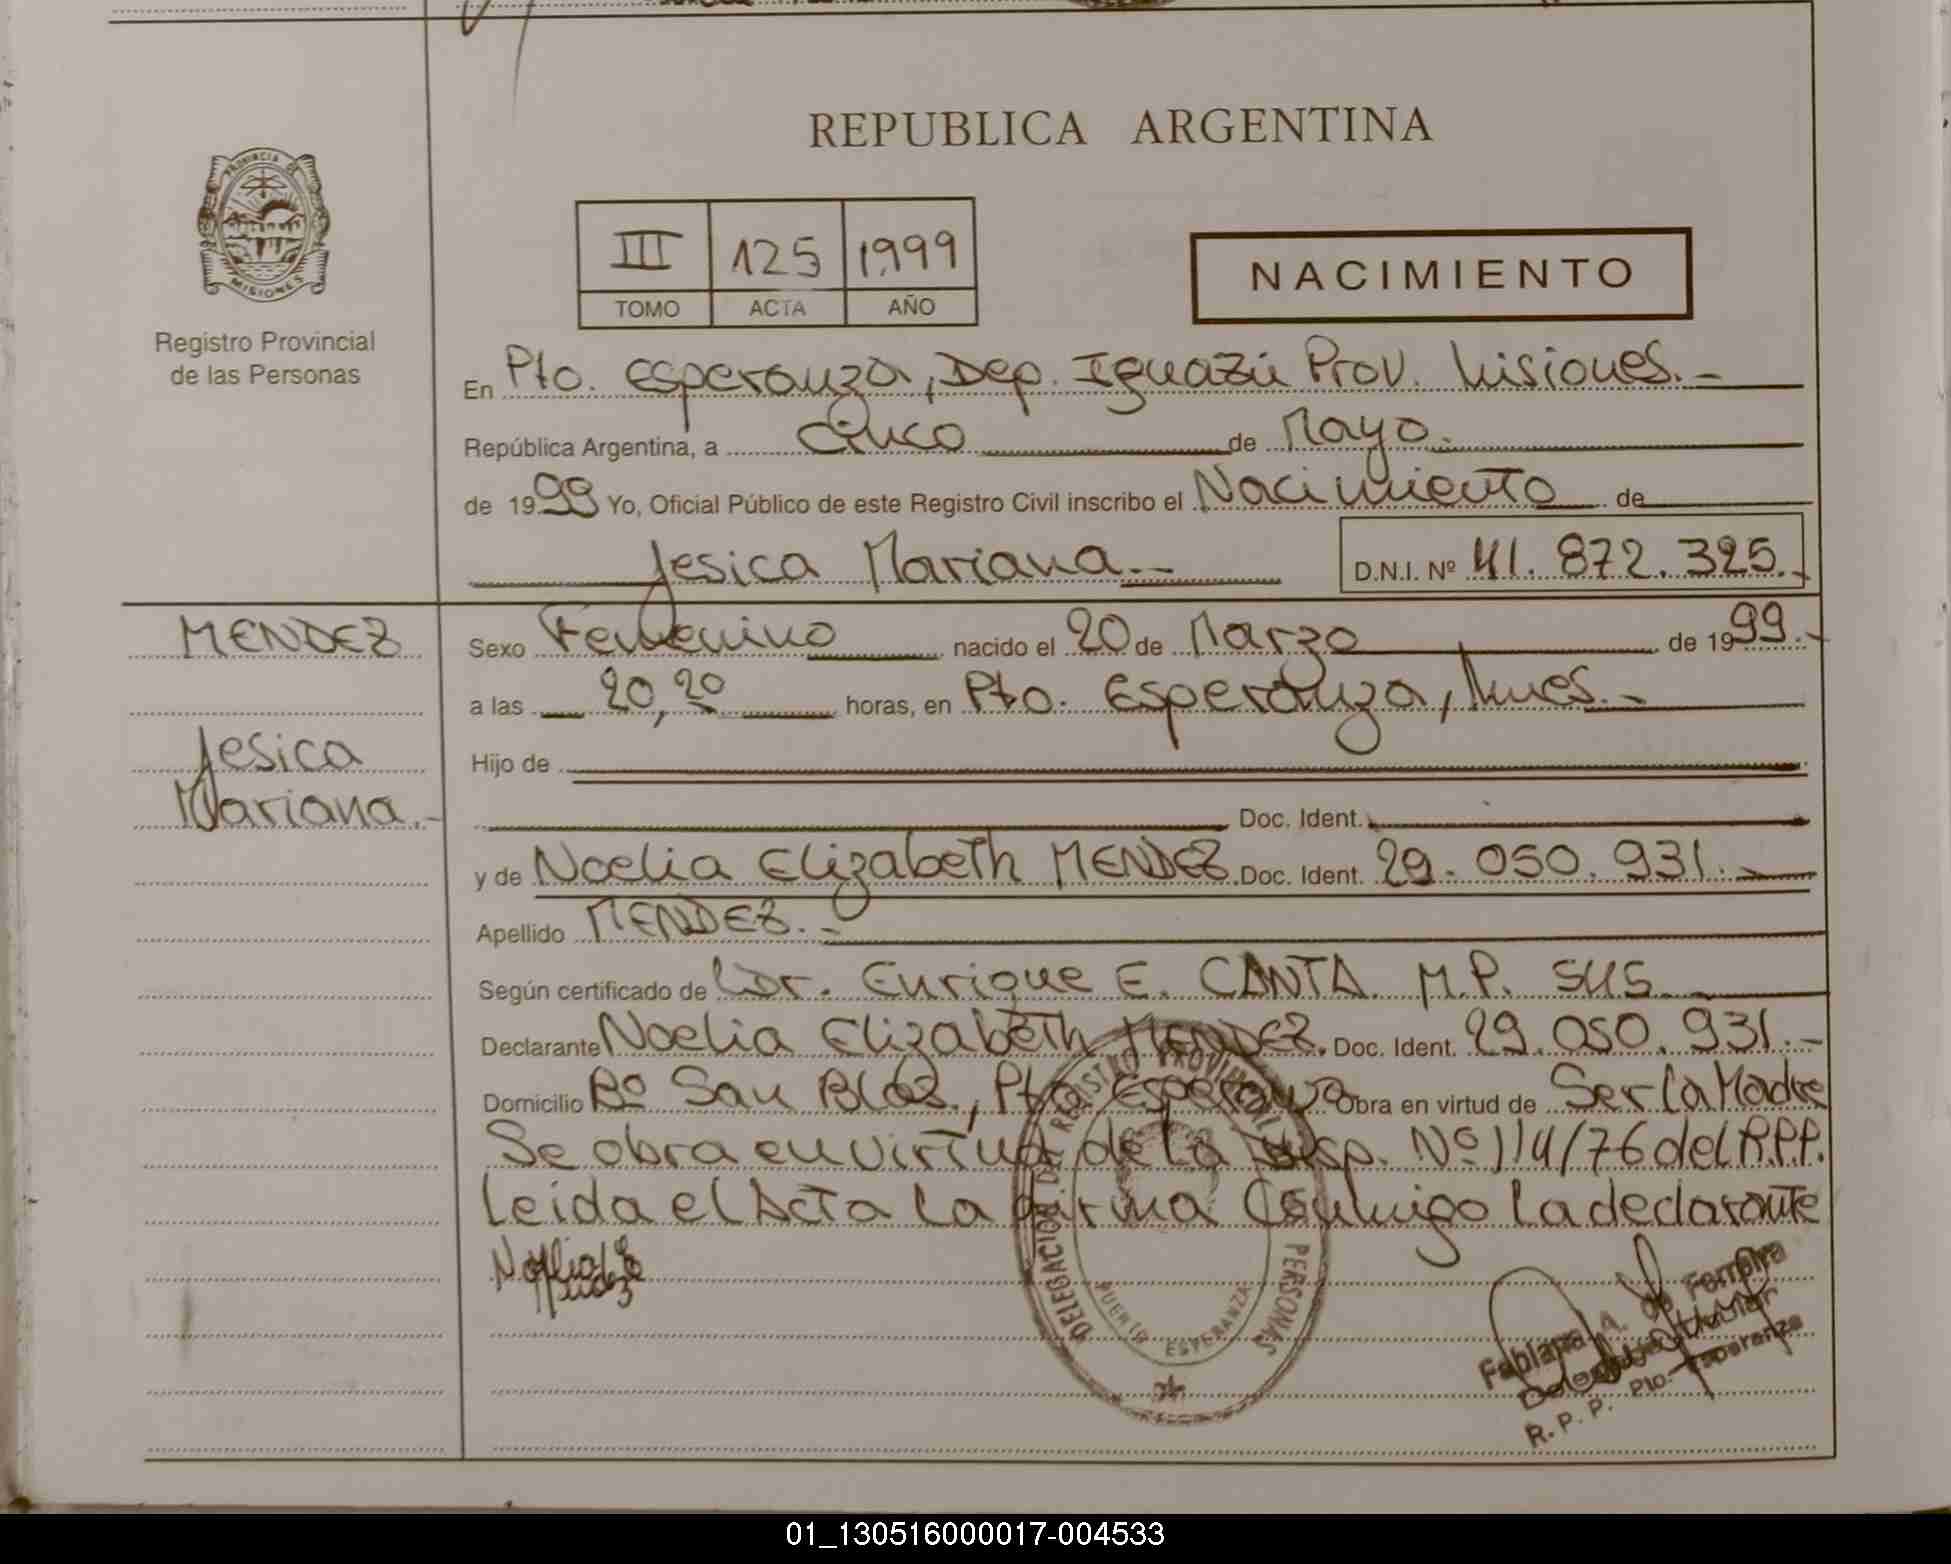 REPUBLICA ARGENTINA
PROVINCIA DE
MISIONES
Registro Provincial
de las Personas
III 125 1999
TOMO ACTA AÑO
NACIMIENTO
En Pto. Esperanza, Dep. Iguazú Prov. Misiones.-
República Argentina, a Cinco de Mayo.
de 1999 Yo, Oficial Público de este Registro Civil inscribo el Nacimiento de
Jesica Mariana.-
D.N.I. Nº 41.872.325.-
MENDEZ
Jesica
Mariana.-
Sexo Femenino nacido el 20 de Marzo de 1999.-
a las 20,20 horas, en Pto. Esperanza, Mnes.-
Hijo de
Doc. Ident.
y de Noelia Elizabeth MENDEZ. Doc. Ident. 29.050.931.-
Apellido MENDEZ.-
Según certificado de Dr. Enrique E. CANTA M.P. 545
Declarante Noelia Elizabeth MENDEZ. Doc. Ident. 29.050.931.-
Domicilio Bº San Blas, Pto. Esperanza Obra en virtud de Ser la Madre
Se obra en virtud de la Disp. Nº 114/76 del R.P.P.
Leida el Acta La firma Conmigo la declarante
DELEGACION DEL REGISTRO PROVINCIAL DE LAS PERSONAS
PUERTO ESPERANZA
Fabiana A. de Ferreira
Delegada Titular
R.P.P. Pto. Esperanza
01_130516000017-004533